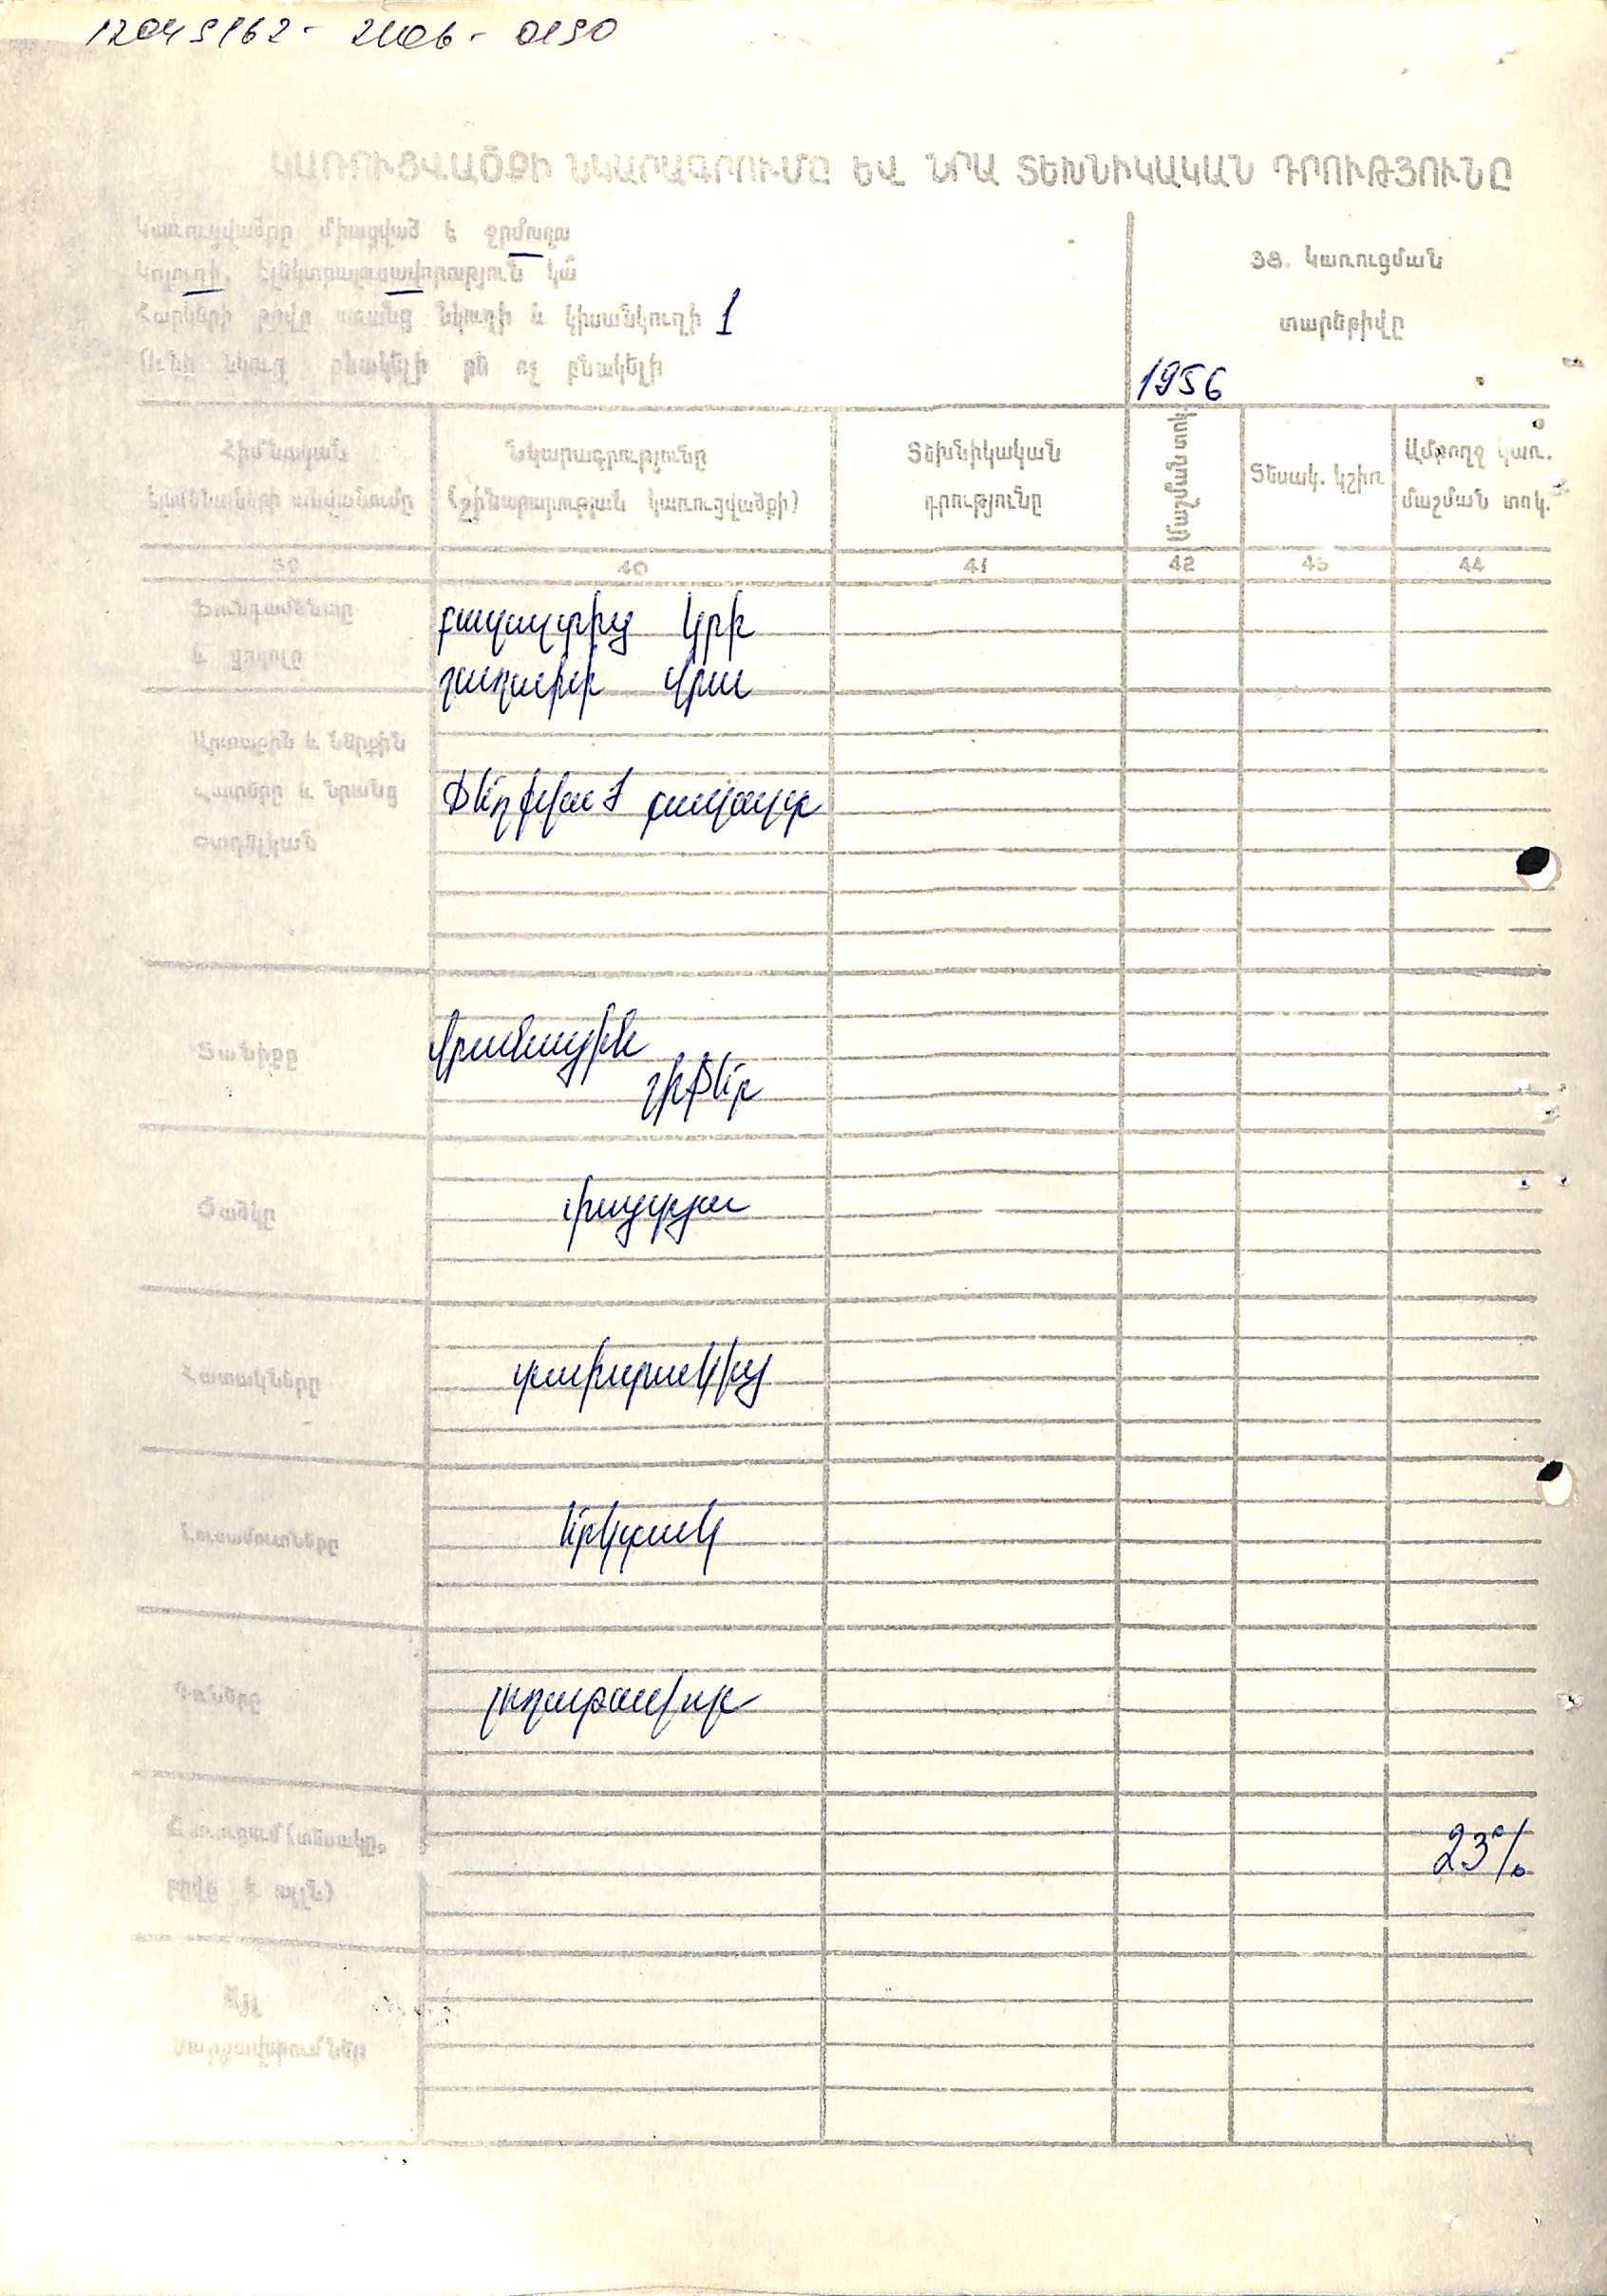 12045162- 2106- 0190
ԿԱՌՈՒՑՎԱԾՔԻ ՆԿԱՐԱԳՐՈՒՄԸ ԵՎ ՆՐԱ ՏԵԽՆԻԿԱԿԱՆ ԴՐՈՒԹՅՈՒՆԸ
Կառուցվածքը միացված է ջրմուղա
կոյուղի, էլեկտրալուսավորություն կա
Հարկերի թիվը առանց նկուղի և կիսանկուղի 1
Ունի նկուղ բնակելի թե ոչ բնակելի
38. Կառուցման
տարեթիվը
1956
Հիմնական
էլեմենտների անվանումը
Նկարագրությունը
(շինարարության կառուցվածքի)
Տեխնիկական
դրությունը
Մաշման տոկ.
Տեսակ. կշիռ
Ամբողջ կառ.
մաշման տոկ.
39 40 41 42 43 44
Ֆունդամենտը
և ցոկոլը
բազալտից կրի
շաղախի վրա
Արտաքին և ներքին
Պատերը և նրանց
Փեղկված բազալտ
Տանիքը
կրամային
շիֆեր
Ծածկը
փայտյա
Հատակները
տախտակից
Լուսամուտները
երկտակ
Դռները
շրդաթավոր
Հեռուցում (տեսակը,
23%
Այլ